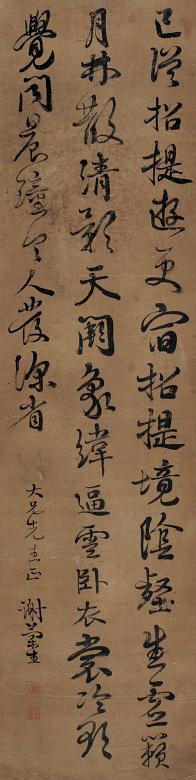 已從招提遊更宿招提境陰壑生靈籟
月林散清影天闕象緯逼雲臥衣裳冷欲
覺聞晨鐘令人發深省
大兄先生正 謝蘭生